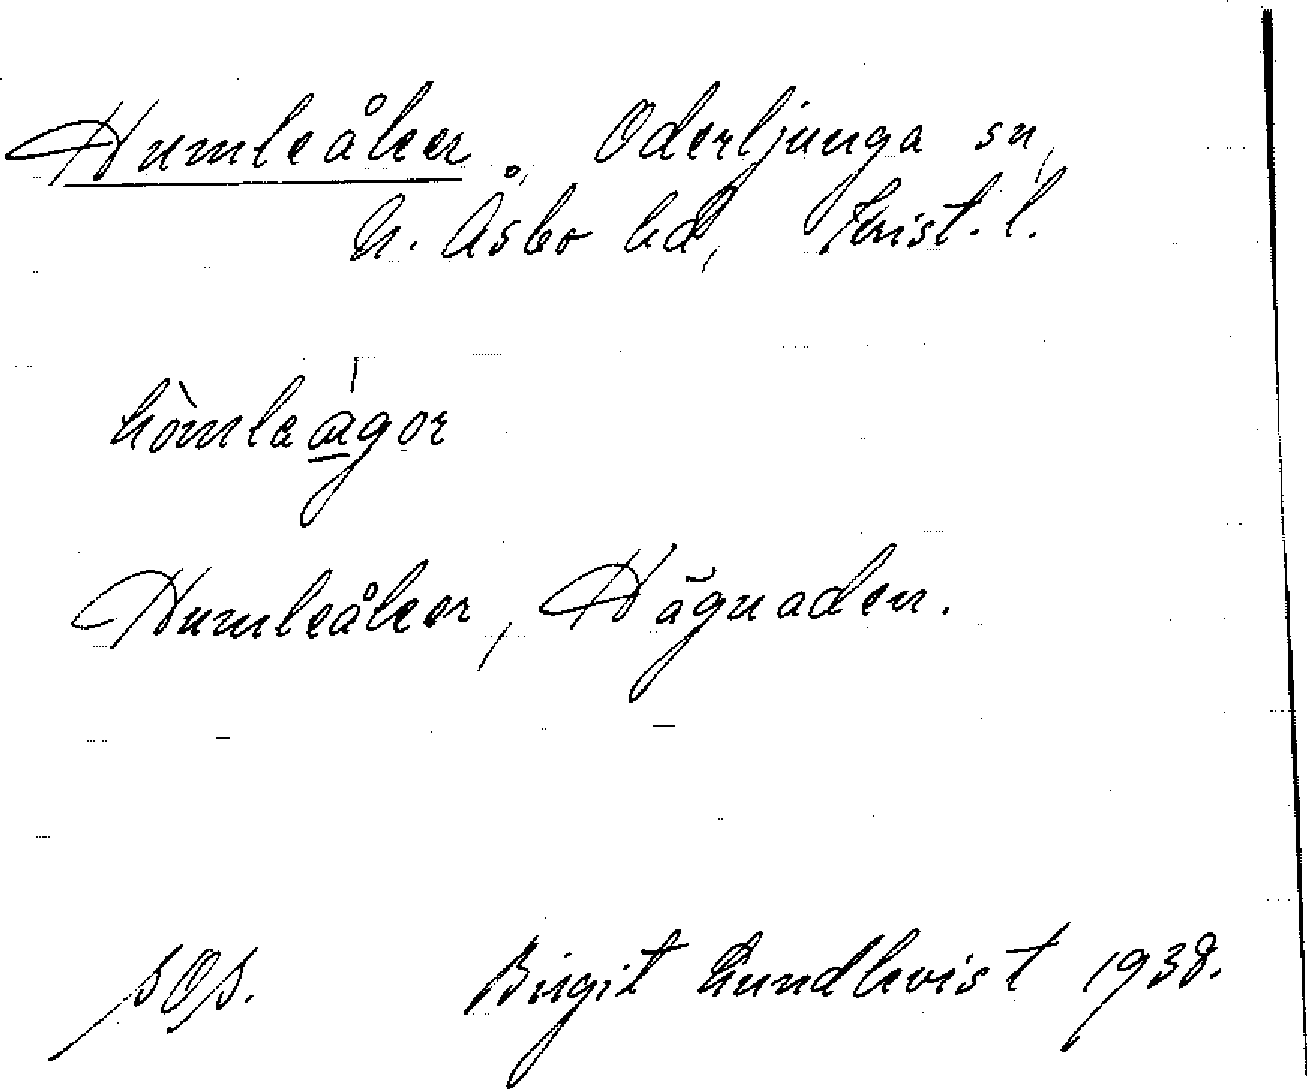 Humleåker, Oderljunga sn,
N. Åsbo hd, Krist. l.
hòmleágor
Humleåker, Hägnaden.
SOS. Birgit Lundkvist 1938.